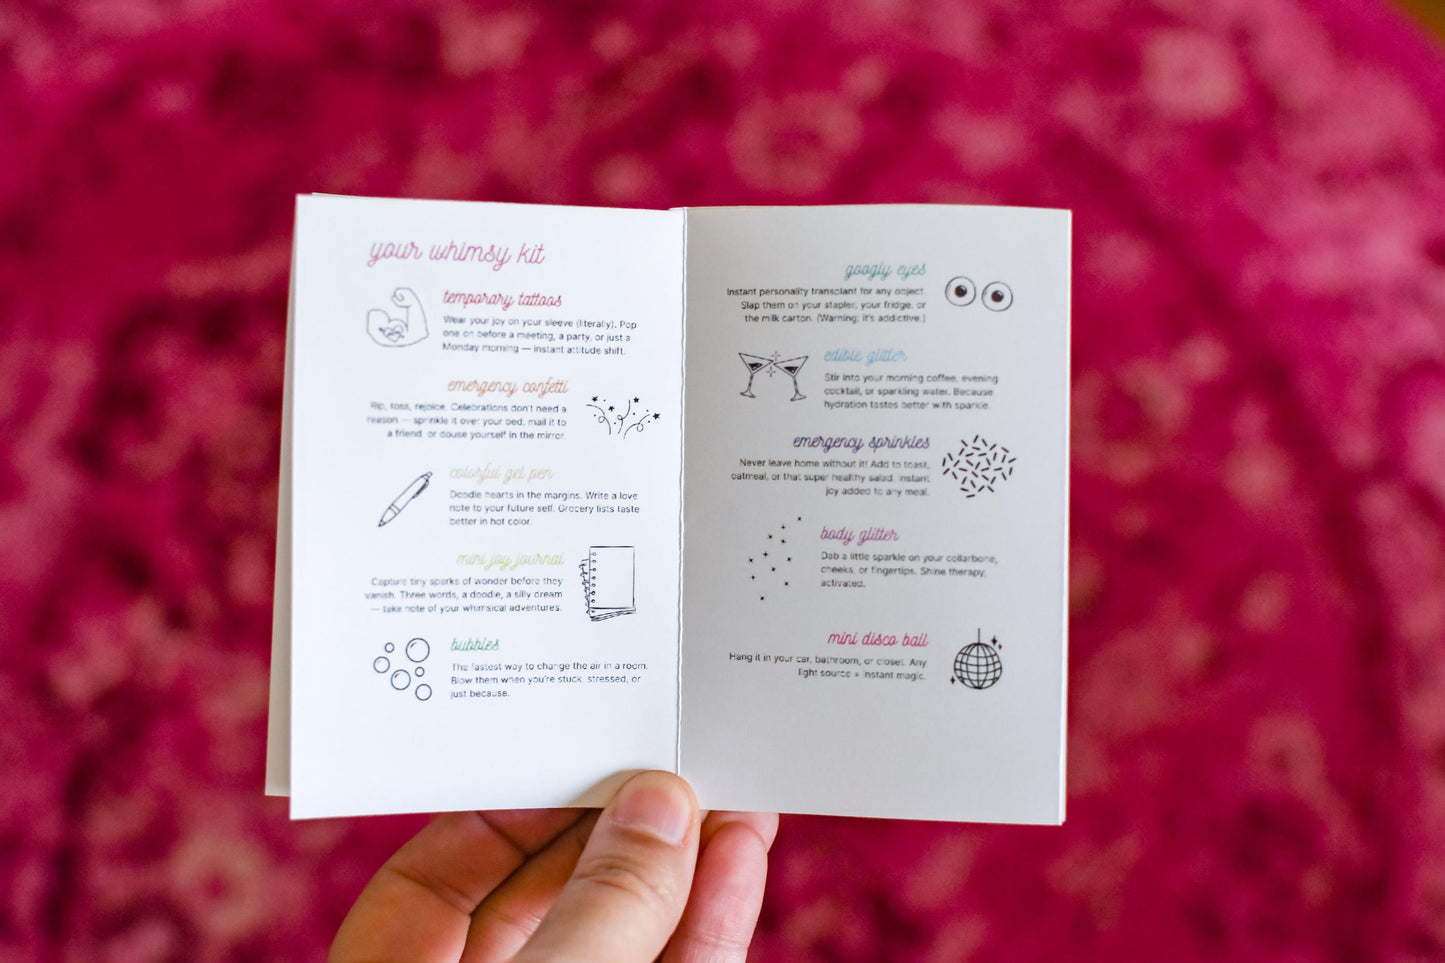 your whimsy kit
temporary tattoos
Wear your joy on your sleeve (literally). Pop
one on before a meeting, a party, or just a
Monday morning — instant attitude shift.
emergency confetti
Rip, toss, rejoice. Celebrations don't need a
reason — sprinkle it over your bed, mail it to
a friend, or douse yourself in the mirror.
colorful gel pen
Doodle hearts in the margins. Write a love
note to your future self. Grocery lists taste
better in hot color.
mini joy journal
Capture tiny sparks of wonder before they
vanish. Three words, a doodle, a silly dream
— take note of your whimsical adventures.
bubbles
The fastest way to change the air in a room.
Blow them when you're stuck, stressed, or
just because.
googly eyes
Instant personality transplant for any object.
Slap them on your stapler, your fridge, or
the milk carton. (Warning: it's addictive.)
edible glitter
Stir into your morning coffee, evening
cocktail, or sparkling water. Because
hydration tastes better with sparkle.
emergency sprinkles
Never leave home without it! Add to toast,
oatmeal, or that super healthy salad. Instant
joy added to any meal.
body glitter
Dab a little sparkle on your collarbone,
cheeks, or fingertips. Shine therapy,
activated.
mini disco ball
Hang it in your car, bathroom, or closet. Any
light source = instant magic.